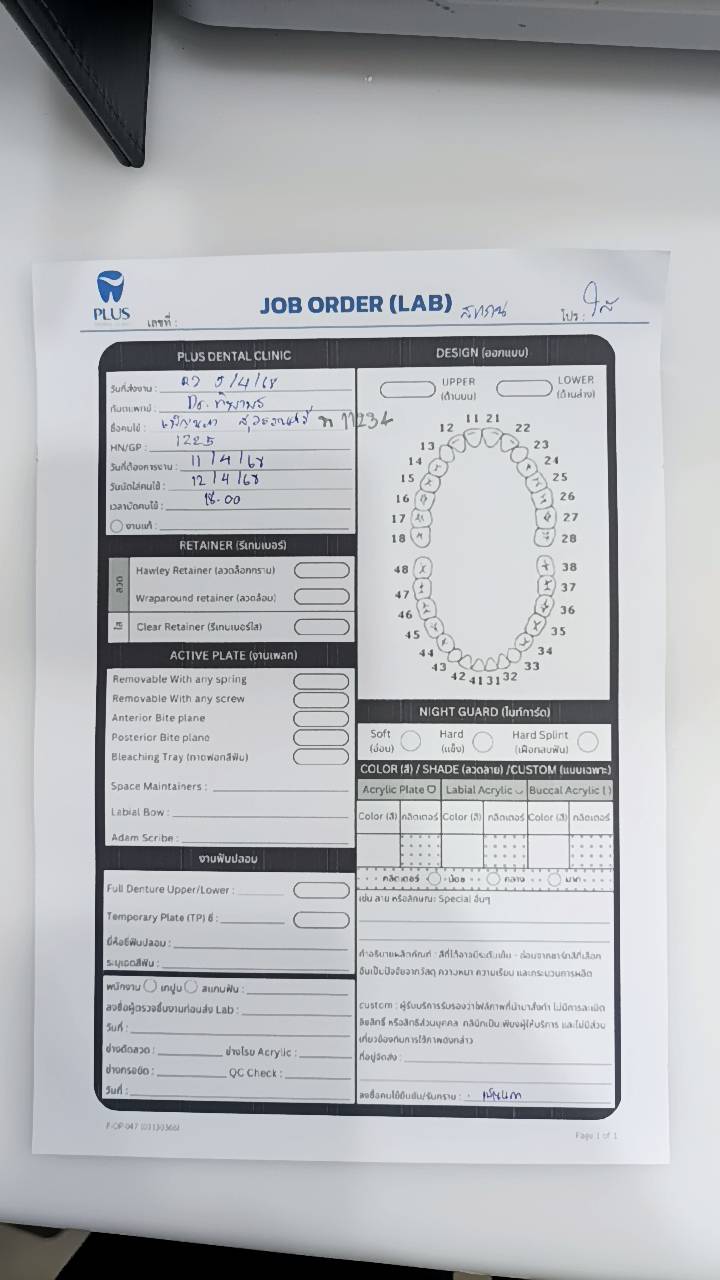 PLUS
JOB ORDER (LAB)
เลขที่ :
โปร : ใส
PLUS DENTAL CLINIC
วันที่ส่งงาน :
ทันตแพทย์ : Dr.
ชื่อคนไข้ : ท 11234
HN/GP : 1225
วันที่ต้องการงาน : 11/4/68
วันนัดใส่คนไข้ : 12/4/68
เวลานัดคนไข้ : 18.00
งานแก้ :
RETAINER (รีเทนเนอร์)
ลวด
Hawley Retainer (ลวดล็อกกราม)
Wraparound retainer (ลวดล้อม)
ใส
Clear Retainer (รีเทนเนอร์ใส)
ACTIVE PLATE (งานเพลท)
Removable With any spring
Removable With any screw
Anterior Bite plane
Posterior Bite plane
Bleaching Tray (ถาดฟอกสีฟัน)
Space Maintainers :
Labial Bow :
Adam Scribe :
งานฟันปลอม
Full Denture Upper/Lower :
Temporary Plate (TP) ซี่ :
ยี่ห้อซี่ฟันปลอม :
ระบุเฉดสีฟัน :
พนักงาน เทปูน สแกนฟัน :
ลงชื่อผู้ตรวจชิ้นงานก่อนส่ง Lab :
วันที่ :
ช่างดัดลวด : ช่างโรย Acrylic :
ช่างกรอขัด : QC Check :
วันที่ :
DESIGN (ออกแบบ)
UPPER (ด้านบน)
LOWER (ด้านล่าง)
11 21
12 22
13 23
14 24
15 25
16 26
17 27
18 28
48 38
47 37
46 36
45 35
44 34
43 33
42 41 31 32
NIGHT GUARD (ไนท์การ์ด)
Soft (อ่อน)
Hard (แข็ง)
Hard Splint (เฝือกสบฟัน)
COLOR (สี) / SHADE (ลวดลาย) /CUSTOM (แบบเฉพาะ)
Acrylic Plate Labial Acrylic Buccal Acrylic ( )
Color (สี) กลิตเตอร์ Color (สี) กลิตเตอร์ Color (สี) กลิตเตอร์
กลิตเตอร์ น้อย กลาง มาก
เช่น ลาย หรือลักษณะ Special อื่นๆ
คำอธิบายผลิตภัณฑ์ : สีที่ได้อาจมีระดับเข้ม - อ่อนจากชาร์ทสีที่เลือก
อันเป็นปัจจัยจากวัสดุ ความหนา ความเรียบ และกระบวนการผลิต
custom : ผู้รับบริการรับรองว่าไฟล์ภาพที่นำมาสั่งทำ ไม่มีการละเมิด
ลิขสิทธิ์ หรือสิทธิส่วนบุคคล คลินิกเป็นเพียงผู้ให้บริการ และไม่มีส่วน
เกี่ยวข้องกับการใช้ภาพดังกล่าว
ที่อยู่จัดส่ง :
ลงชื่อคนไข้ยืนยัน/รับทราบ :
F-OP-047 (03130366)
Page 1 of 1